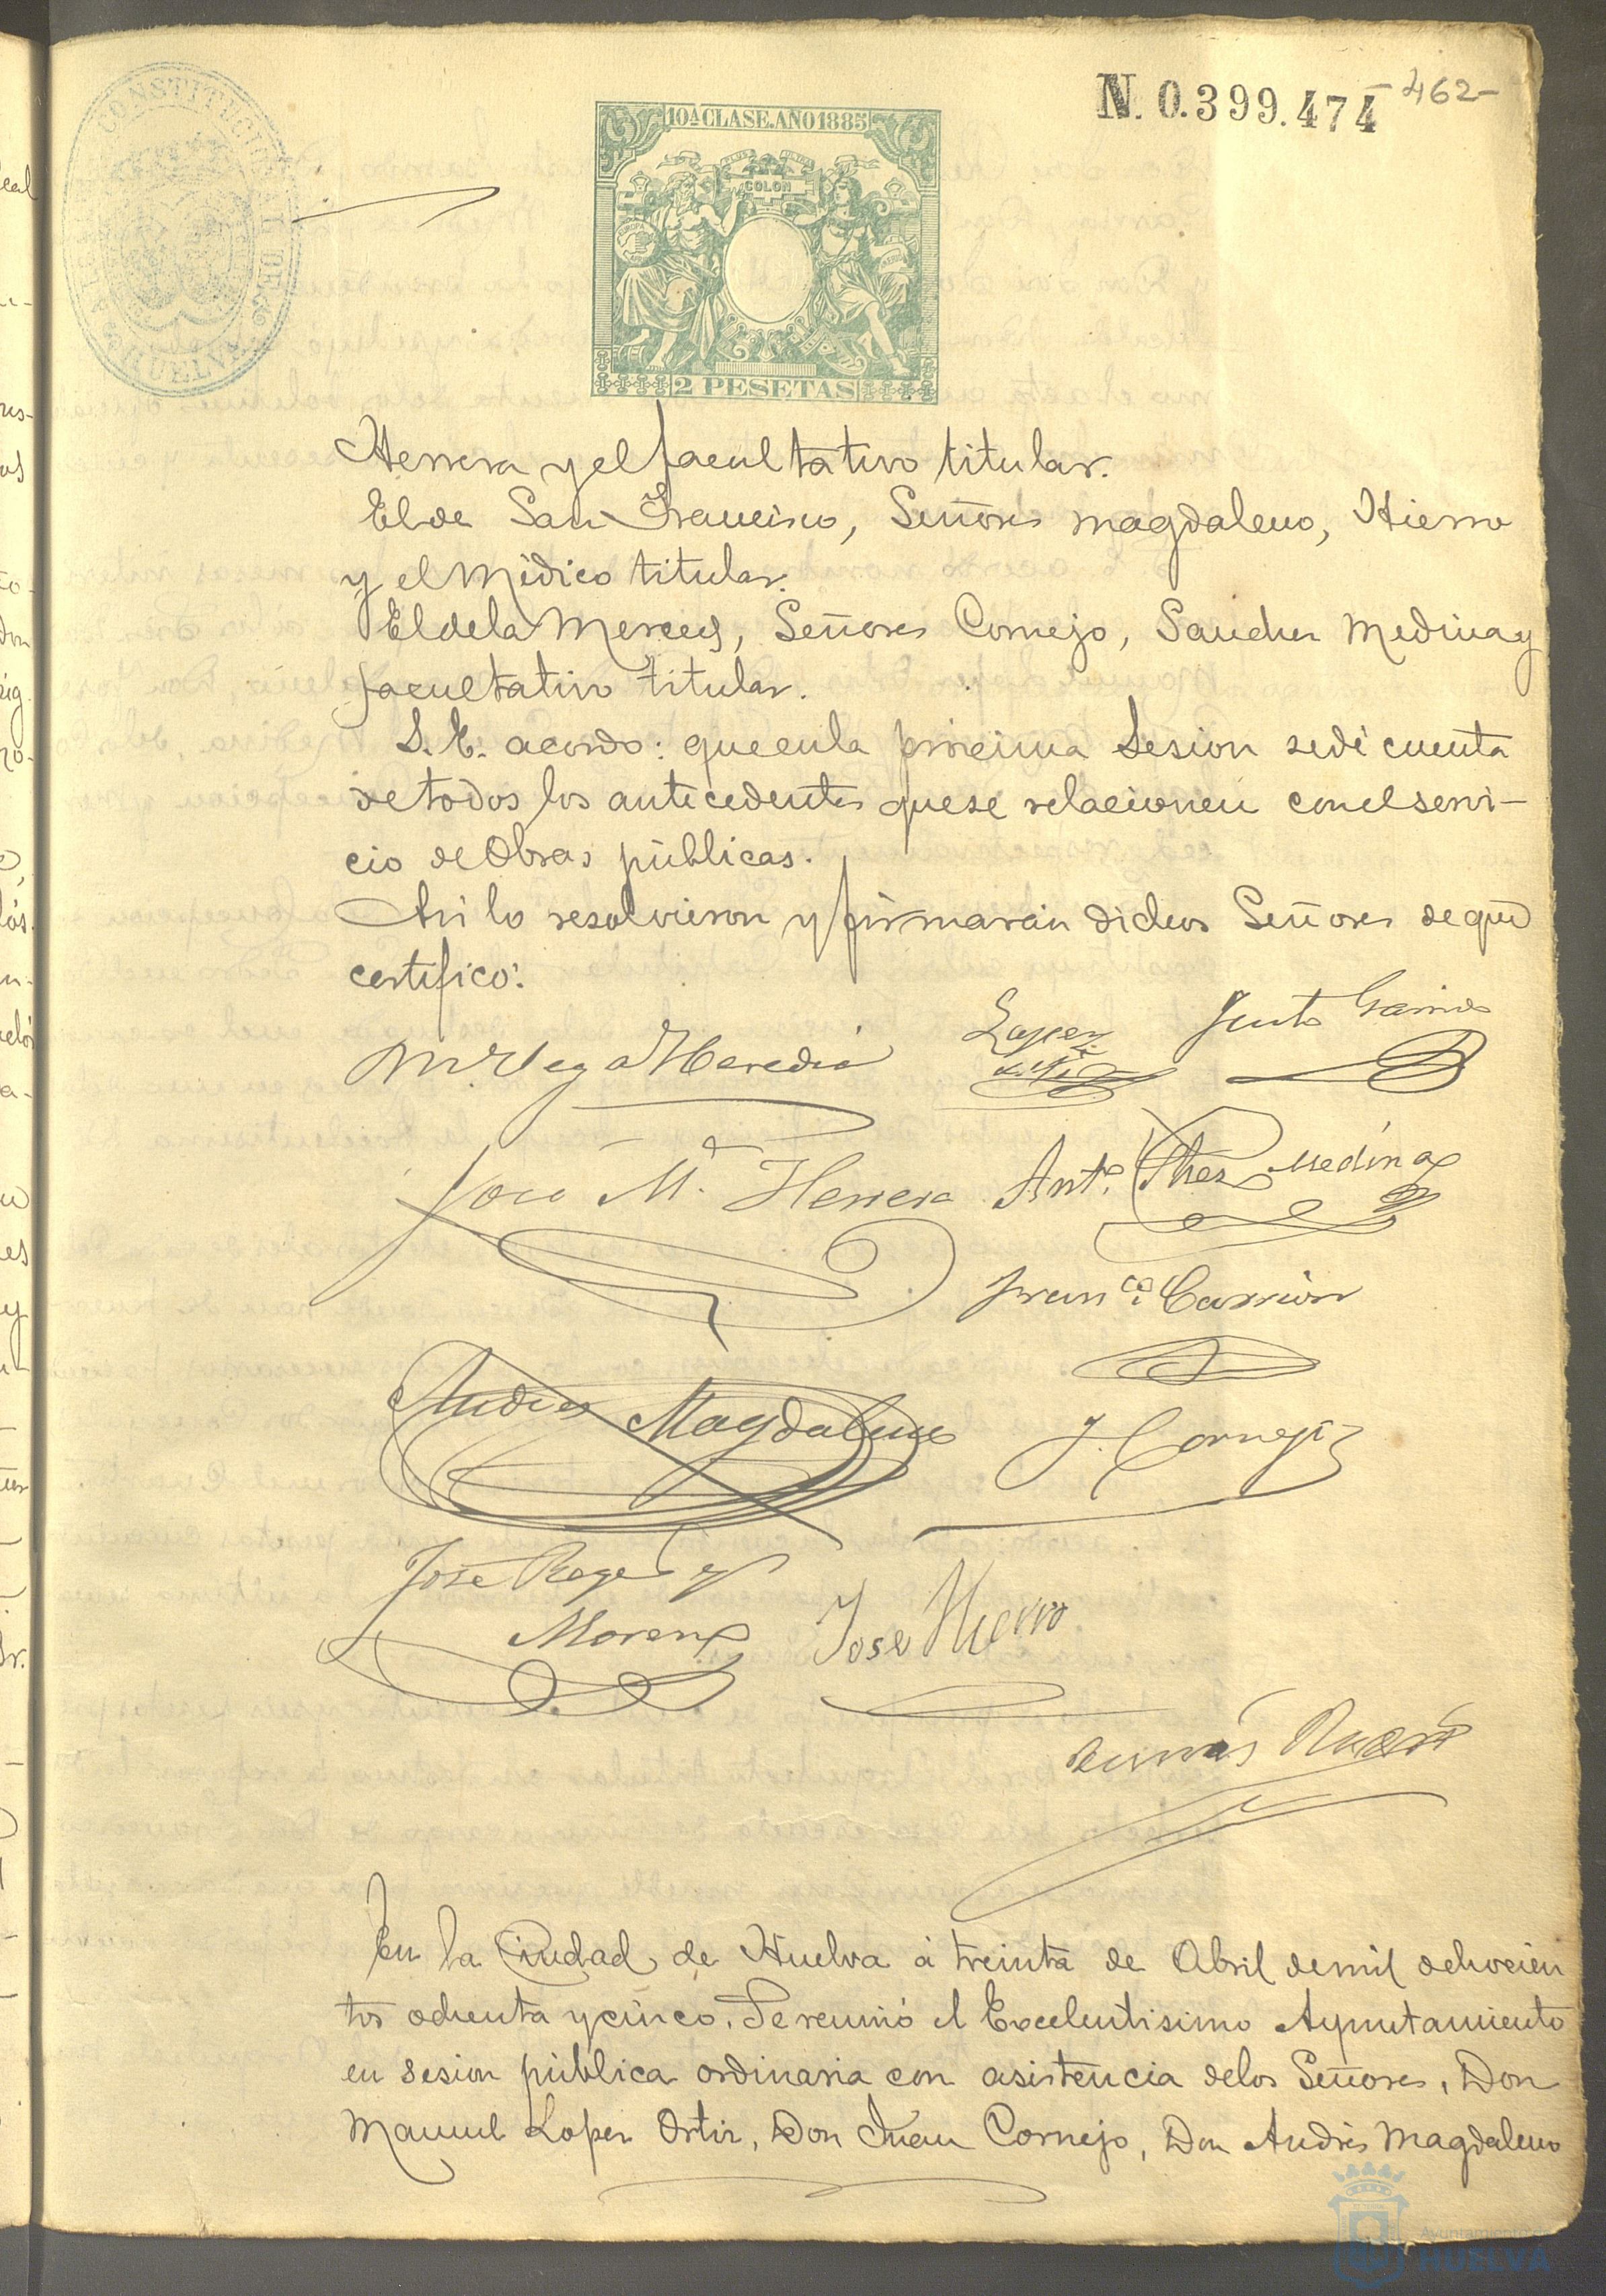 N. 0.399.474
462-
CONSTITUCIONAL DE HUELVA
10ª CLASE. AÑO 1885
PLUS ULTRA
COLON
EUROPA
2 PESETAS
Herrera y el facultativo titular.
El de San Francisco, Señores Magdaleno, Hierro
y el Médico titular.
El de la Merced, Señores Cornejo, Sanchez Medina y
facultativo titular.
S. E. acordó: que en la próxima Sesion se dé cuenta
de todos los antecedentes que se relacionen con el servi-
cio de Obras públicas.
Asi lo resolvieron y firmarán dichos Señores de que
certifico:
M. Vega Heredia
Lopez
Justo Garrido
José Mª. Herrera
Antº. Shez Medina
Franco. Carrion
Andres Magdaleno
J. Cornejo
José Roge
Moreno
José Hierro
En la Ciudad de Huelva á treinta de Abril de mil ochocien
tos ochenta y cinco. Se reunió el Excelentisimo Ayuntamiento
en sesion pública ordinaria con asistencia de los Señores, Don
Manuel Lopez Ortiz, Don Juan Cornejo, Don Andrés Magdaleno
Ayuntamiento de
HUELVA